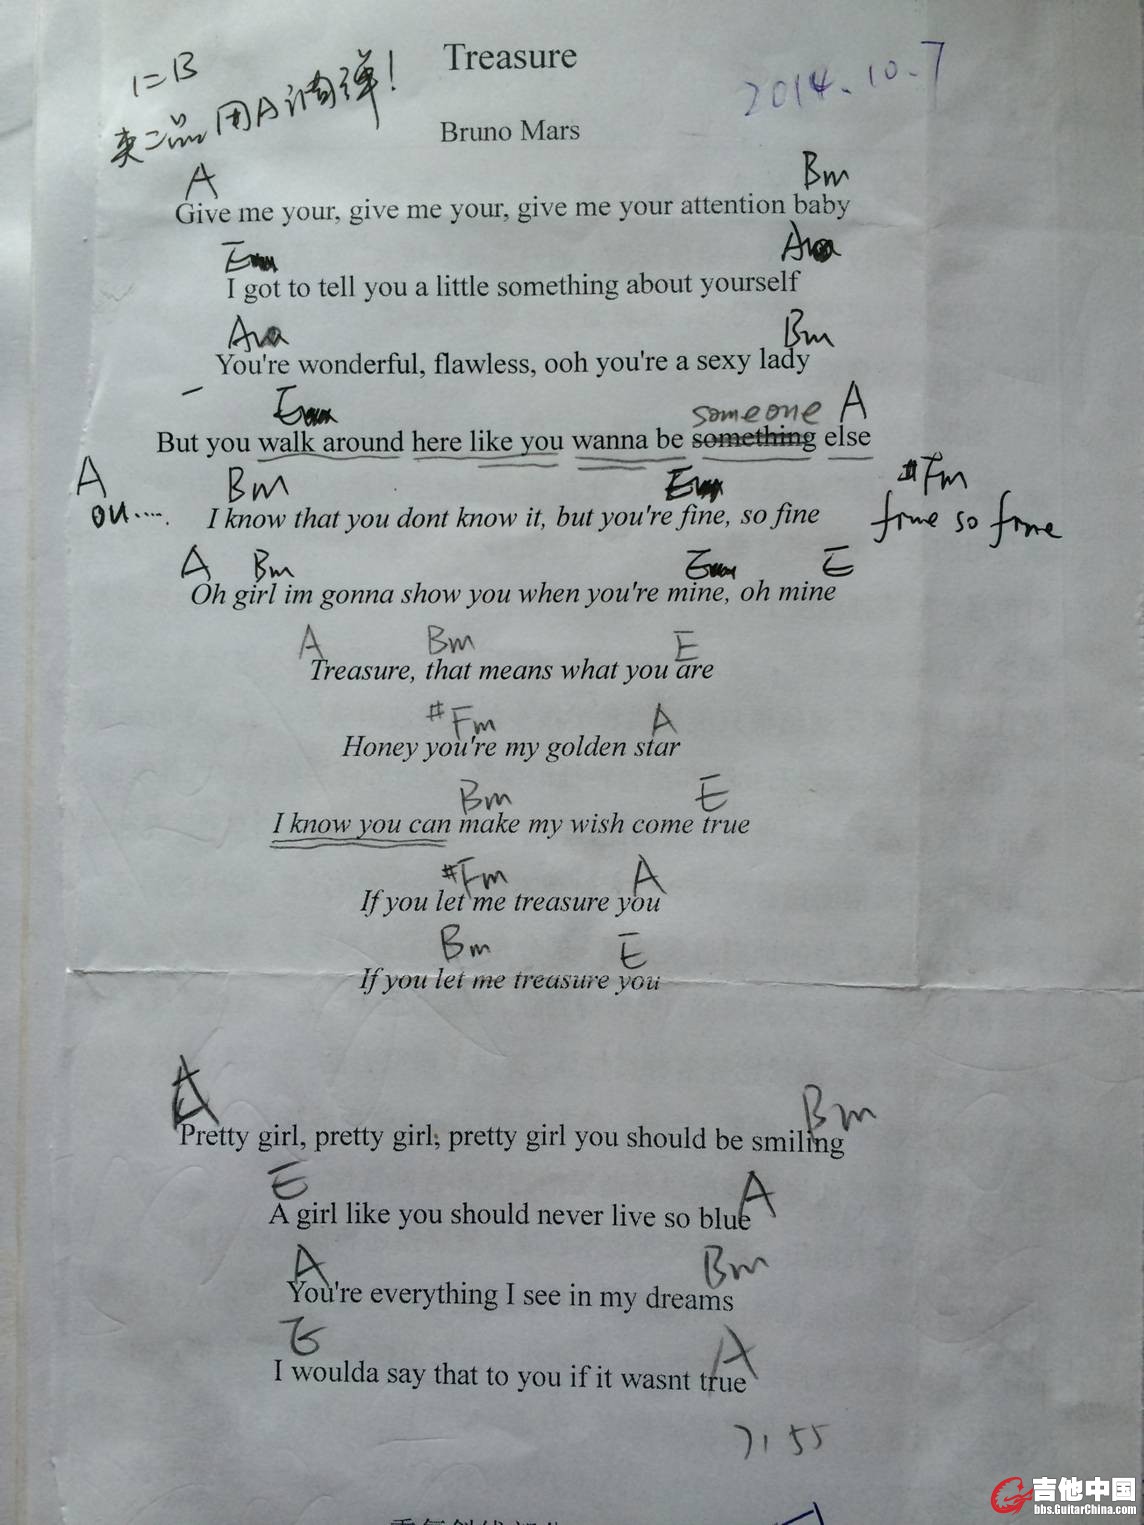 Treasure
1=B
2014.10.7
夹二品用A调弹!
Bruno Mars
A Bm
Give me your, give me your, give me your attention baby
E A
I got to tell you a little something about yourself
A Bm
You're wonderful, flawless, ooh you're a sexy lady
E someone A
But you walk around here like you wanna be something else
A Bm E #Fm
ou..... I know that you dont know it, but you're fine, so fine fine so fine
A Bm E E
Oh girl im gonna show you when you're mine, oh mine
A Bm E
Treasure, that means what you are
#Fm A
Honey you're my golden star
Bm E
I know you can make my wish come true
#Fm A
If you let me treasure you
Bm E
If you let me treasure you
A Bm
Pretty girl, pretty girl, pretty girl you should be smiling
E A
A girl like you should never live so blue
A Bm
You're everything I see in my dreams
E A
I woulda say that to you if it wasnt true
7155
吉他中国
bbs.GuitarChina.com